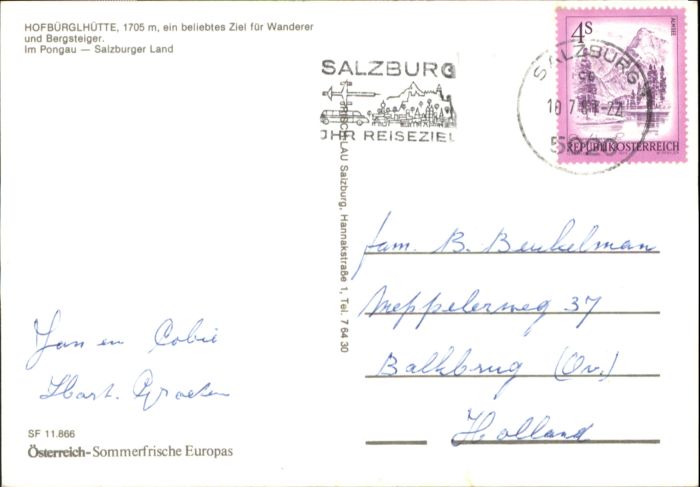 HOFBÜRGLHÜTTE, 1705 m, ein beliebtes Ziel für Wanderer
und Bergsteiger.
Im Pongau — Salzburger Land
SALZBURG
IHR REISEZIEL
4S
ALMSEE
REPUBLIK ÖSTERREICH
SALZBURG
5020
RISCHLAU Salzburg, Hannakstraße 1, Tel. 7 64 30
fam. B. Beukelman
Meppelerweg 37
Balkbrug (Ov.)
Holland
Jan en Cobie
Hart. Groeten
SF 11.866
Österreich-Sommerfrische Europas